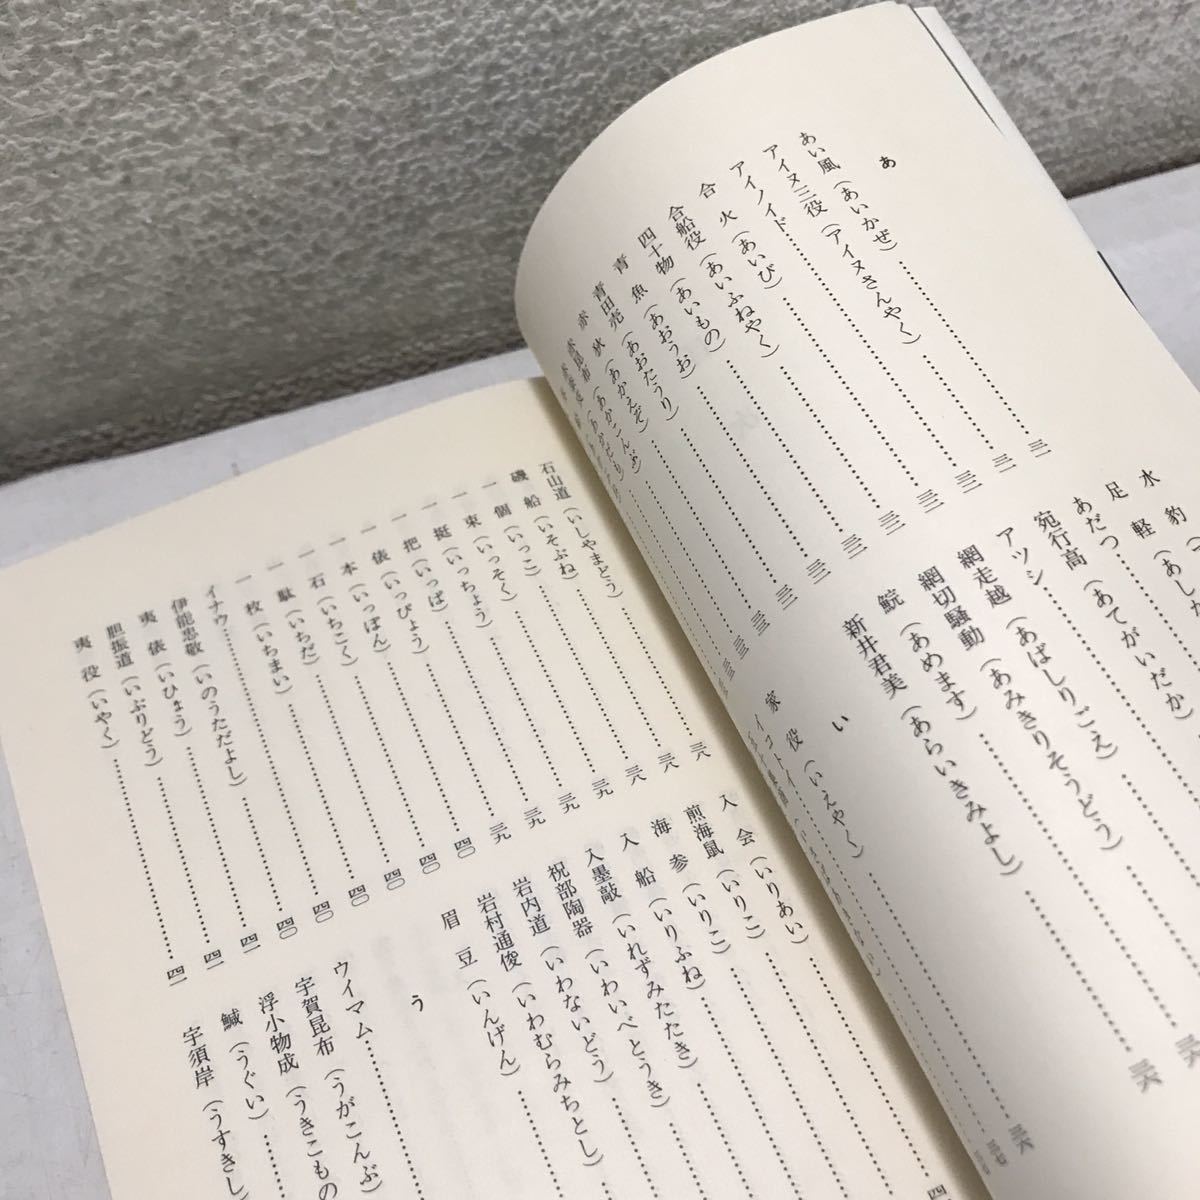 あ
あい風(あいかぜ)……三一
アイヌ三役(アイヌさんやく)……三一
アイノイド……三一
合火(あいび)……三一
合船役(あいふねやく)……三一
四十物(あいもの)……三一
青魚(あおうお)
青田売(あおたうり)
赤狄(あかえぞ)
赤昆布(あかこんぶ)
水豹(あし
足軽(
あだつ
宛行高(あてがいだか)
アツシ
網走越(あばしりごえ)
網切騒動(あみきりそうどう)
鯇(あめます)
新井君美(あらいきみよし)
い
家役(いえやく)
イコトイ
石山道(いしやまどう)……三八
磯船(いそぶね)……三八
一個(いっこ)……三八
一束(いっそく)……三九
一挺(いっちょう)……三九
一把(いっぱ)……三九
一俵(いっぴょう)……三九
一本(いっぽん)……四〇
一石(いちこく)……四〇
一駄(いちだ)……四〇
一枚(いちまい)……四〇
イナウ……四〇
伊能忠敬(いのうただよし)……四一
夷俵(いひょう)……四一
胆振道(いぶりどう)……四一
夷役(いやく)……四一
入会(いりあい)
煎海鼠(いりこ)
海参(いりこ)
入船(いりふね)
入墨敲(いれずみたたき)
祝部陶器(いわいべとうき)
岩内道(いわないどう)
岩村通俊(いわむらみちとし)
眉豆(いんげん)
う
ウイマム
宇賀昆布(うがこんぶ)
浮小物成(うきこもの
鰔(うぐい)
宇須岸(うすきし)